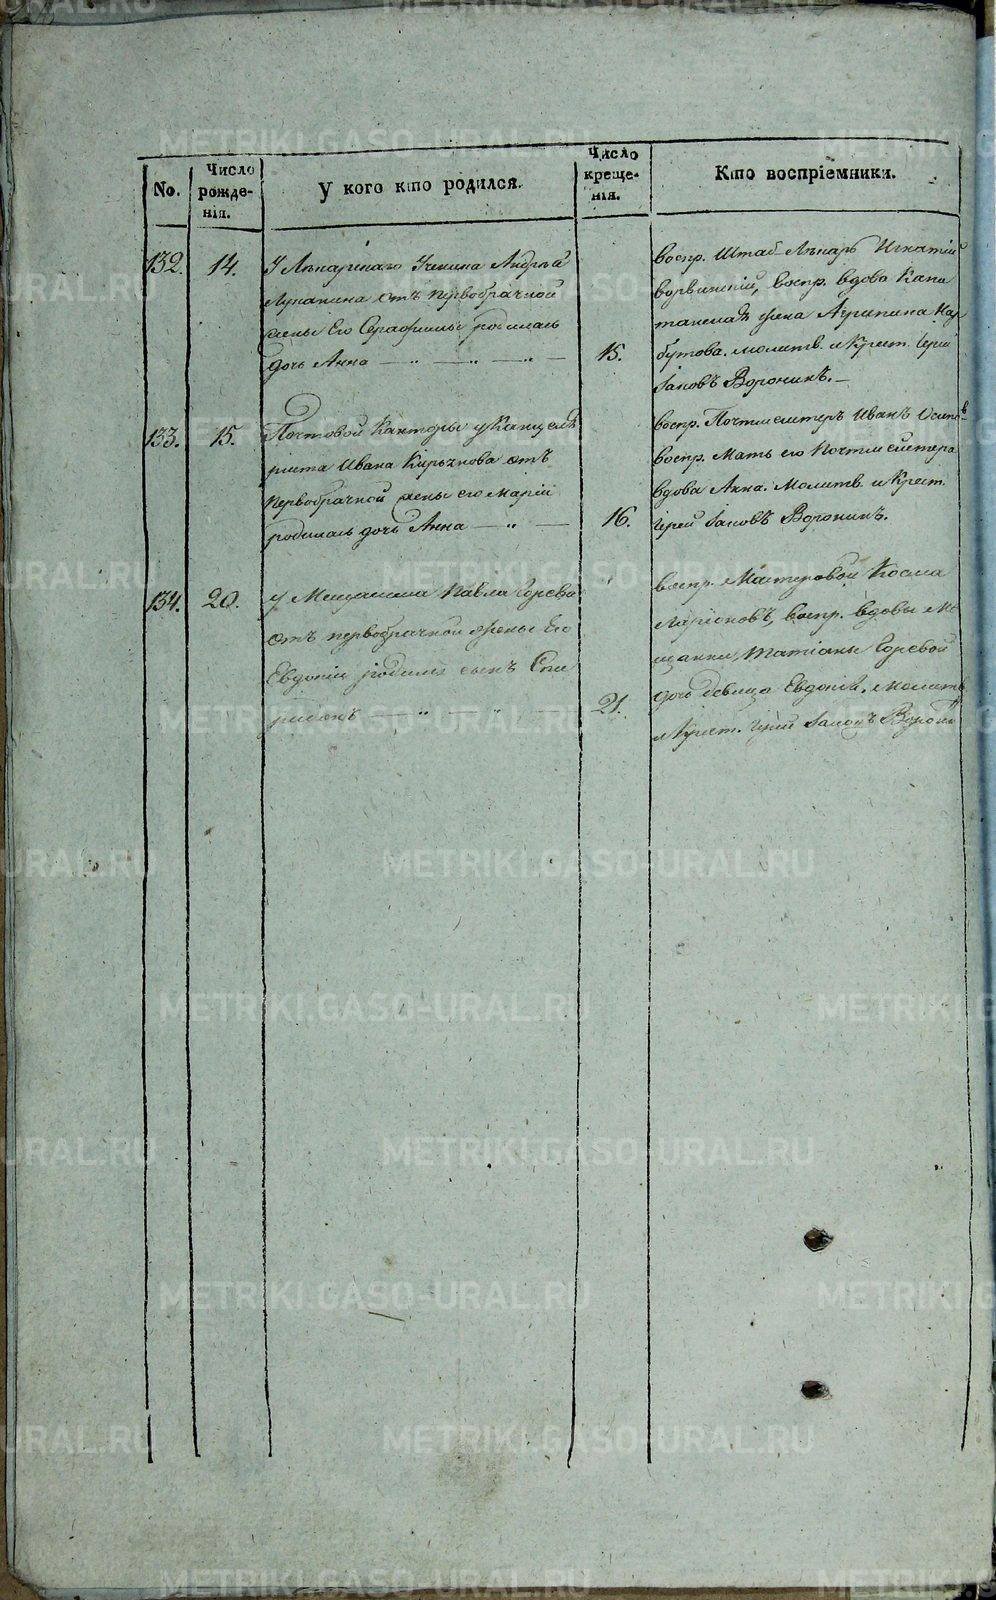 No.
Число рожде-нія.
У кого кто родился.
Число креще-нія.
Кто воспріемники.
132. 14.
У Лѣкарскаго Ученика Андрѣя
Лупанина отъ первобрачной
жены Его Серафимы родилась
дочь Анна
15.
воспр. Штаб-Лѣкарь Игнатій
воспр. вдова Капи
жена Агрипина Нар
бутова. молитв. и Крест. Іерей
Іаковъ Воронинъ.
133. 15.
Почтовой Канторы у Канцеля
риста Ивана Кирьякова отъ
первобрачной жены его Маріи
родилась дочь Анна
16.
воспр. Почтмейстеръ Иванъ Осипов
воспр. Мать его Почтмейстера
вдова Анна. Молитв. и Крест.
Іерей Іаковъ Воронинъ.
134. 20.
у Мещанина Павла Горева
отъ первобрачной жены Его
Евдокіи родился сынъ Спи
ридонъ
21.
воспр. Мастеровой Косма
Ларіоновъ, воспр. вдовы Ме
щанки, Татіаны Горевой
дочь девица Евдокія. Молитв.
и Крест. Іерей Іаковъ Ворони
METRIKI.GASO-URAL.RU